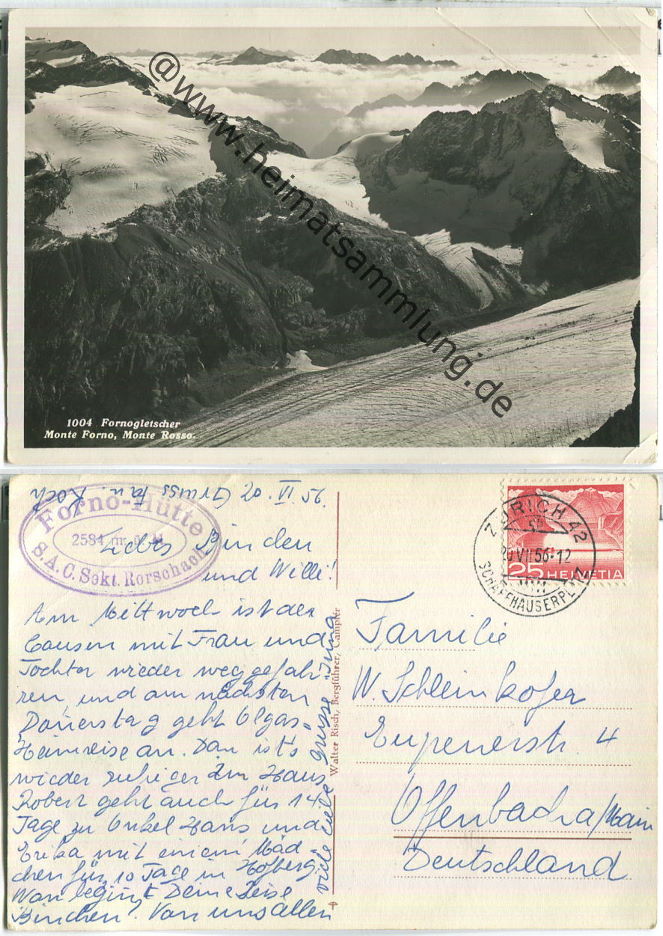 @www.heimatsammlung.de
1004 Fornogletscher
Monte Forno, Monte Rosso.
Gruss fr. Koch
20. VI 56.
Forno-Hütte
2584 m. ü. M.
S.A.C. Sekt. Rorschach
Liebes Binchen
und Willi!
Am Mittwoch ist der
Cousen mit Frau und
Tochter wieder weg gefah-
ren, und am nächsten
Donerstag geht Olgas
Heimreise an. Dan ist's
wieder ruhiger im Haus
Robert geht auch für 14
Tage zu Onkel Hans und
Erika mit einem Mäd
chen für 10 Tage in Hofberg.
Wan beginnt Deine Reise
Binchen. Von uns allen
viele liebe Grüsse
Walter Risch, Bergführer, Campfèr
ZÜRICH 42
VII 56-12
SCHAFFHAUSERPLATZ
25 HELVETIA
Familie
W. Schleinkofer
Eupenerstr. 4
Offenbach a/Main
Deutschland.